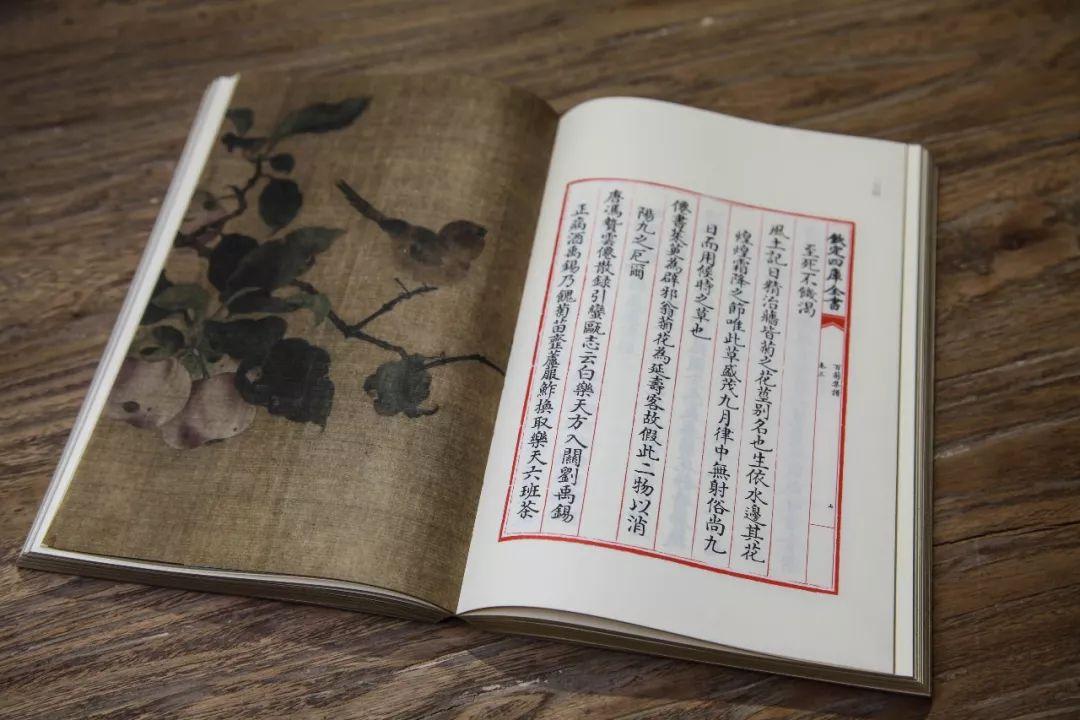 欽定四庫全書
百菊集譜
卷三
七
至死不饑渴
風土記日精治蘠皆菊之花莖別名也生依水邊其花
煌煌霜降之節唯此草盛茂九月律中無射俗尚九
日而用候時之草也
僊書茱萸為辟邪翁菊花為延壽客故假此二物以消
陽九之厄爾
唐馮贄雲僊散錄引蠻甌志云白樂天方入關劉禹錫
正病酒禹錫乃餽菊苗虀蘆菔鮓換取樂天六班茶